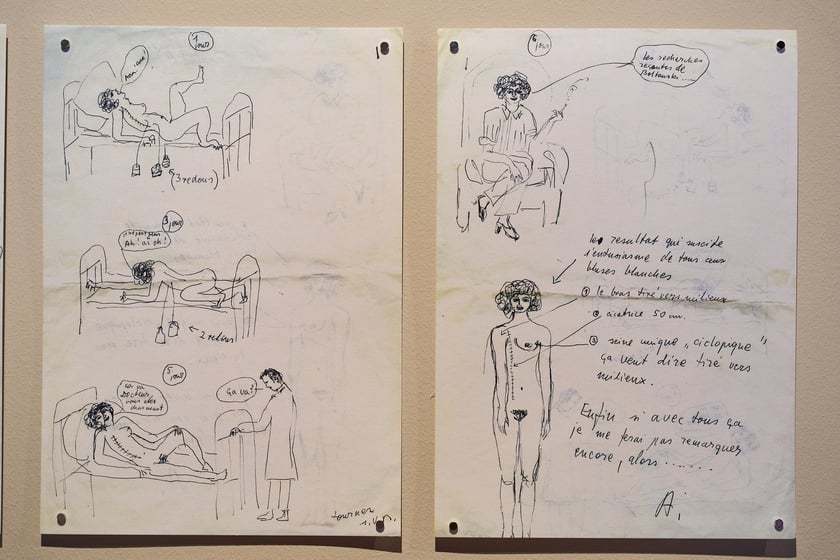 1
jour
1
(3 redons)
3
jour
Ah! aï ah!
← 2 redons
5
jour
ça va
Docteur,
vous êtes
charmant
ça va?
tourner
s.v.p.
6
jour
les recherches
récentes de
Boltanski.....
resultat qui suscite
l'entusiasme de tous ceux
bluses blanches
① le bras tiré vers milieux
② cicatrice 50 cm.
③ seine unique „ciclopique"
ça veut dire tiré vers
milieux.
Enfin si avec tous ça
je me ferai pas remarquer
encore, alors.......
A.